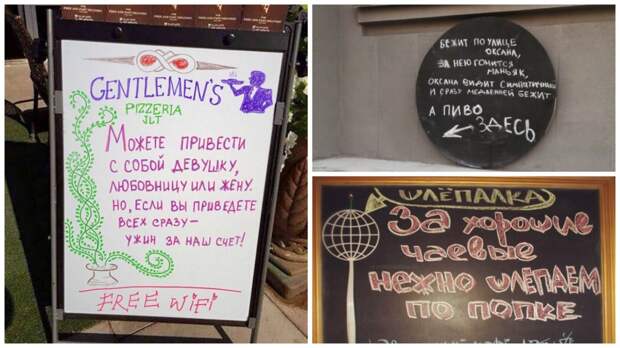 GENTLEMEN'S
PIZZERIA
JLT
МОЖЕТЕ ПРИВЕСТИ
С СОБОЙ ДЕВУШКУ,
ЛЮБОВНИЦУ ИЛИ ЖЕНУ.
НО, ЕСЛИ ВЫ ПРИВЕДЕТЕ
ВСЕХ СРАЗУ —
УЖИН ЗА НАШ СЧЕТ!
FREE WiFi
БЕЖИТ ПО УЛИЦЕ
ОКСАНА,
ЗА НЕЮ ГОНИТСЯ
МАНЬЯК,
ОКСАНА ВИДИТ СИМПАТИЧНЫЙ
И СРАЗУ МЕДЛЕННЕЙ БЕЖИТ
А ПИВО
ЗДЕСЬ
ШЛЁПАЛКА
За хорошие
чаевые
нежно шлёпаем
по попке.